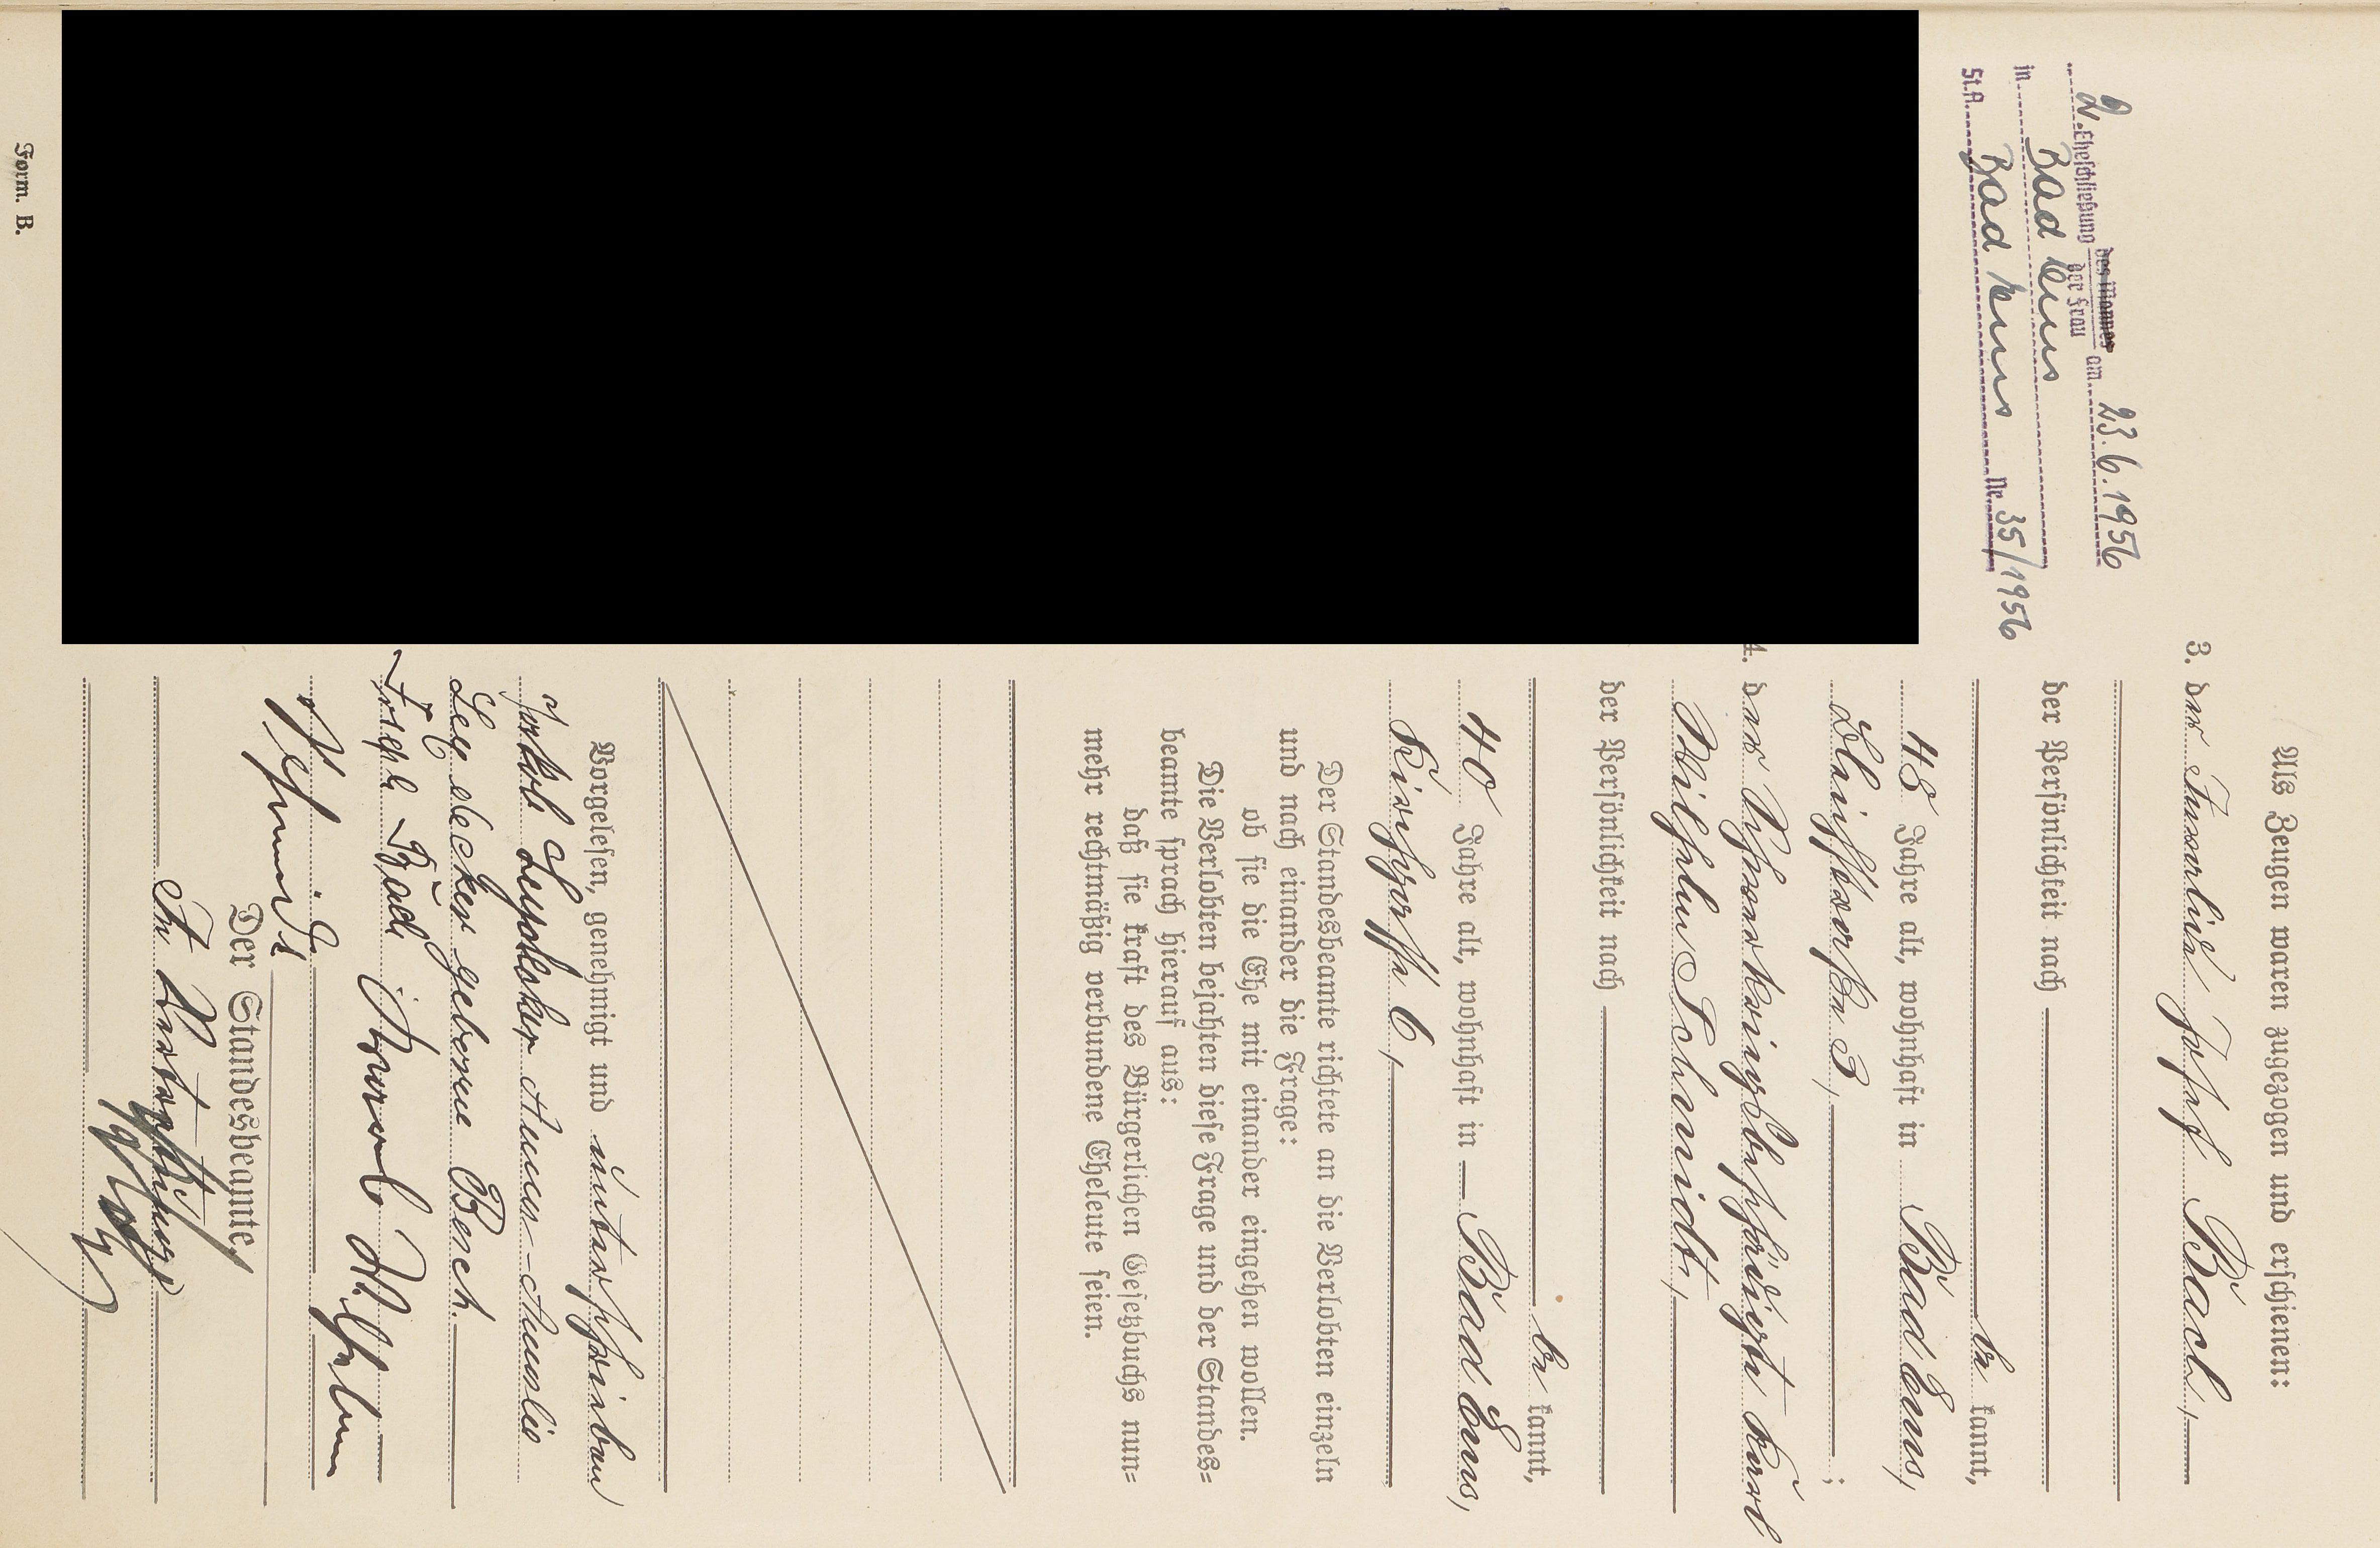 2. Eheschließung des Mannes
der Frau am 23.6.1956
in Bad Ems
St.A. Bad Ems Nr. 35/1956
Als Zeugen waren zugezogen und erschienen:
3. der Josef Bach,
der Persönlichkeit nach
be kannt,
48 Jahre alt, wohnhaft in Bad Ems,
3,;
4. der Karl
Wilhelm Schmidt,
der Persönlichkeit nach
be kannt,
40 Jahre alt, wohnhaft in Bad Ems,
6,
Der Standesbeamte richtete an die Verlobten einzeln
und nach einander die Frage:
ob sie die Ehe mit einander eingehen wollen.
Die Verlobten bejahten diese Frage und der Standes=
beamte sprach hierauf aus:
daß sie kraft des Bürgerlichen Gesetzbuchs nun=
mehr rechtmäßig verbundene Eheleute seien.
Vorgelesen, genehmigt und unterschrieben
Jakob Leydecker Anna
Leydecker geborene Besch.
Josef Bach Karl Wilhelm
Schmidt
Der Standesbeamte.
Form. B.